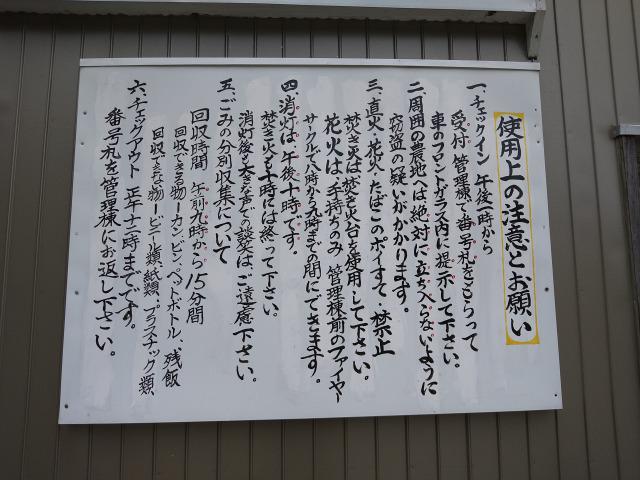 使用上の注意とお願い
一、チェックイン 午後一時から
受付 管理棟で番号札をもらって
車のフロントガラス内に提示して下さい。
二、周囲の農地へは絶対に立ち入らないように
窃盗の疑いがかかります。
三、直火・花火・たばこのポイすて 禁止
焚き火は焚き火台を使用して下さい。
花火は、手持ちのみ 管理棟前のファイヤー
サークルで八時から九時までの間にできます。
四、消灯は、午後十時です。
焚き火も十時には終って下さい。
消灯後も大きな声での談笑はご遠慮下さい。
五、ごみの分別収集について
回収時間 午前九時から15分間
回収できる物ーカン、ビン、ペットボトル、残飯
回収できない物ービニール類、紙類、プラスチック類、
六、チェックアウト 正午十二時までです。
番号札を管理棟にお返し下さい。